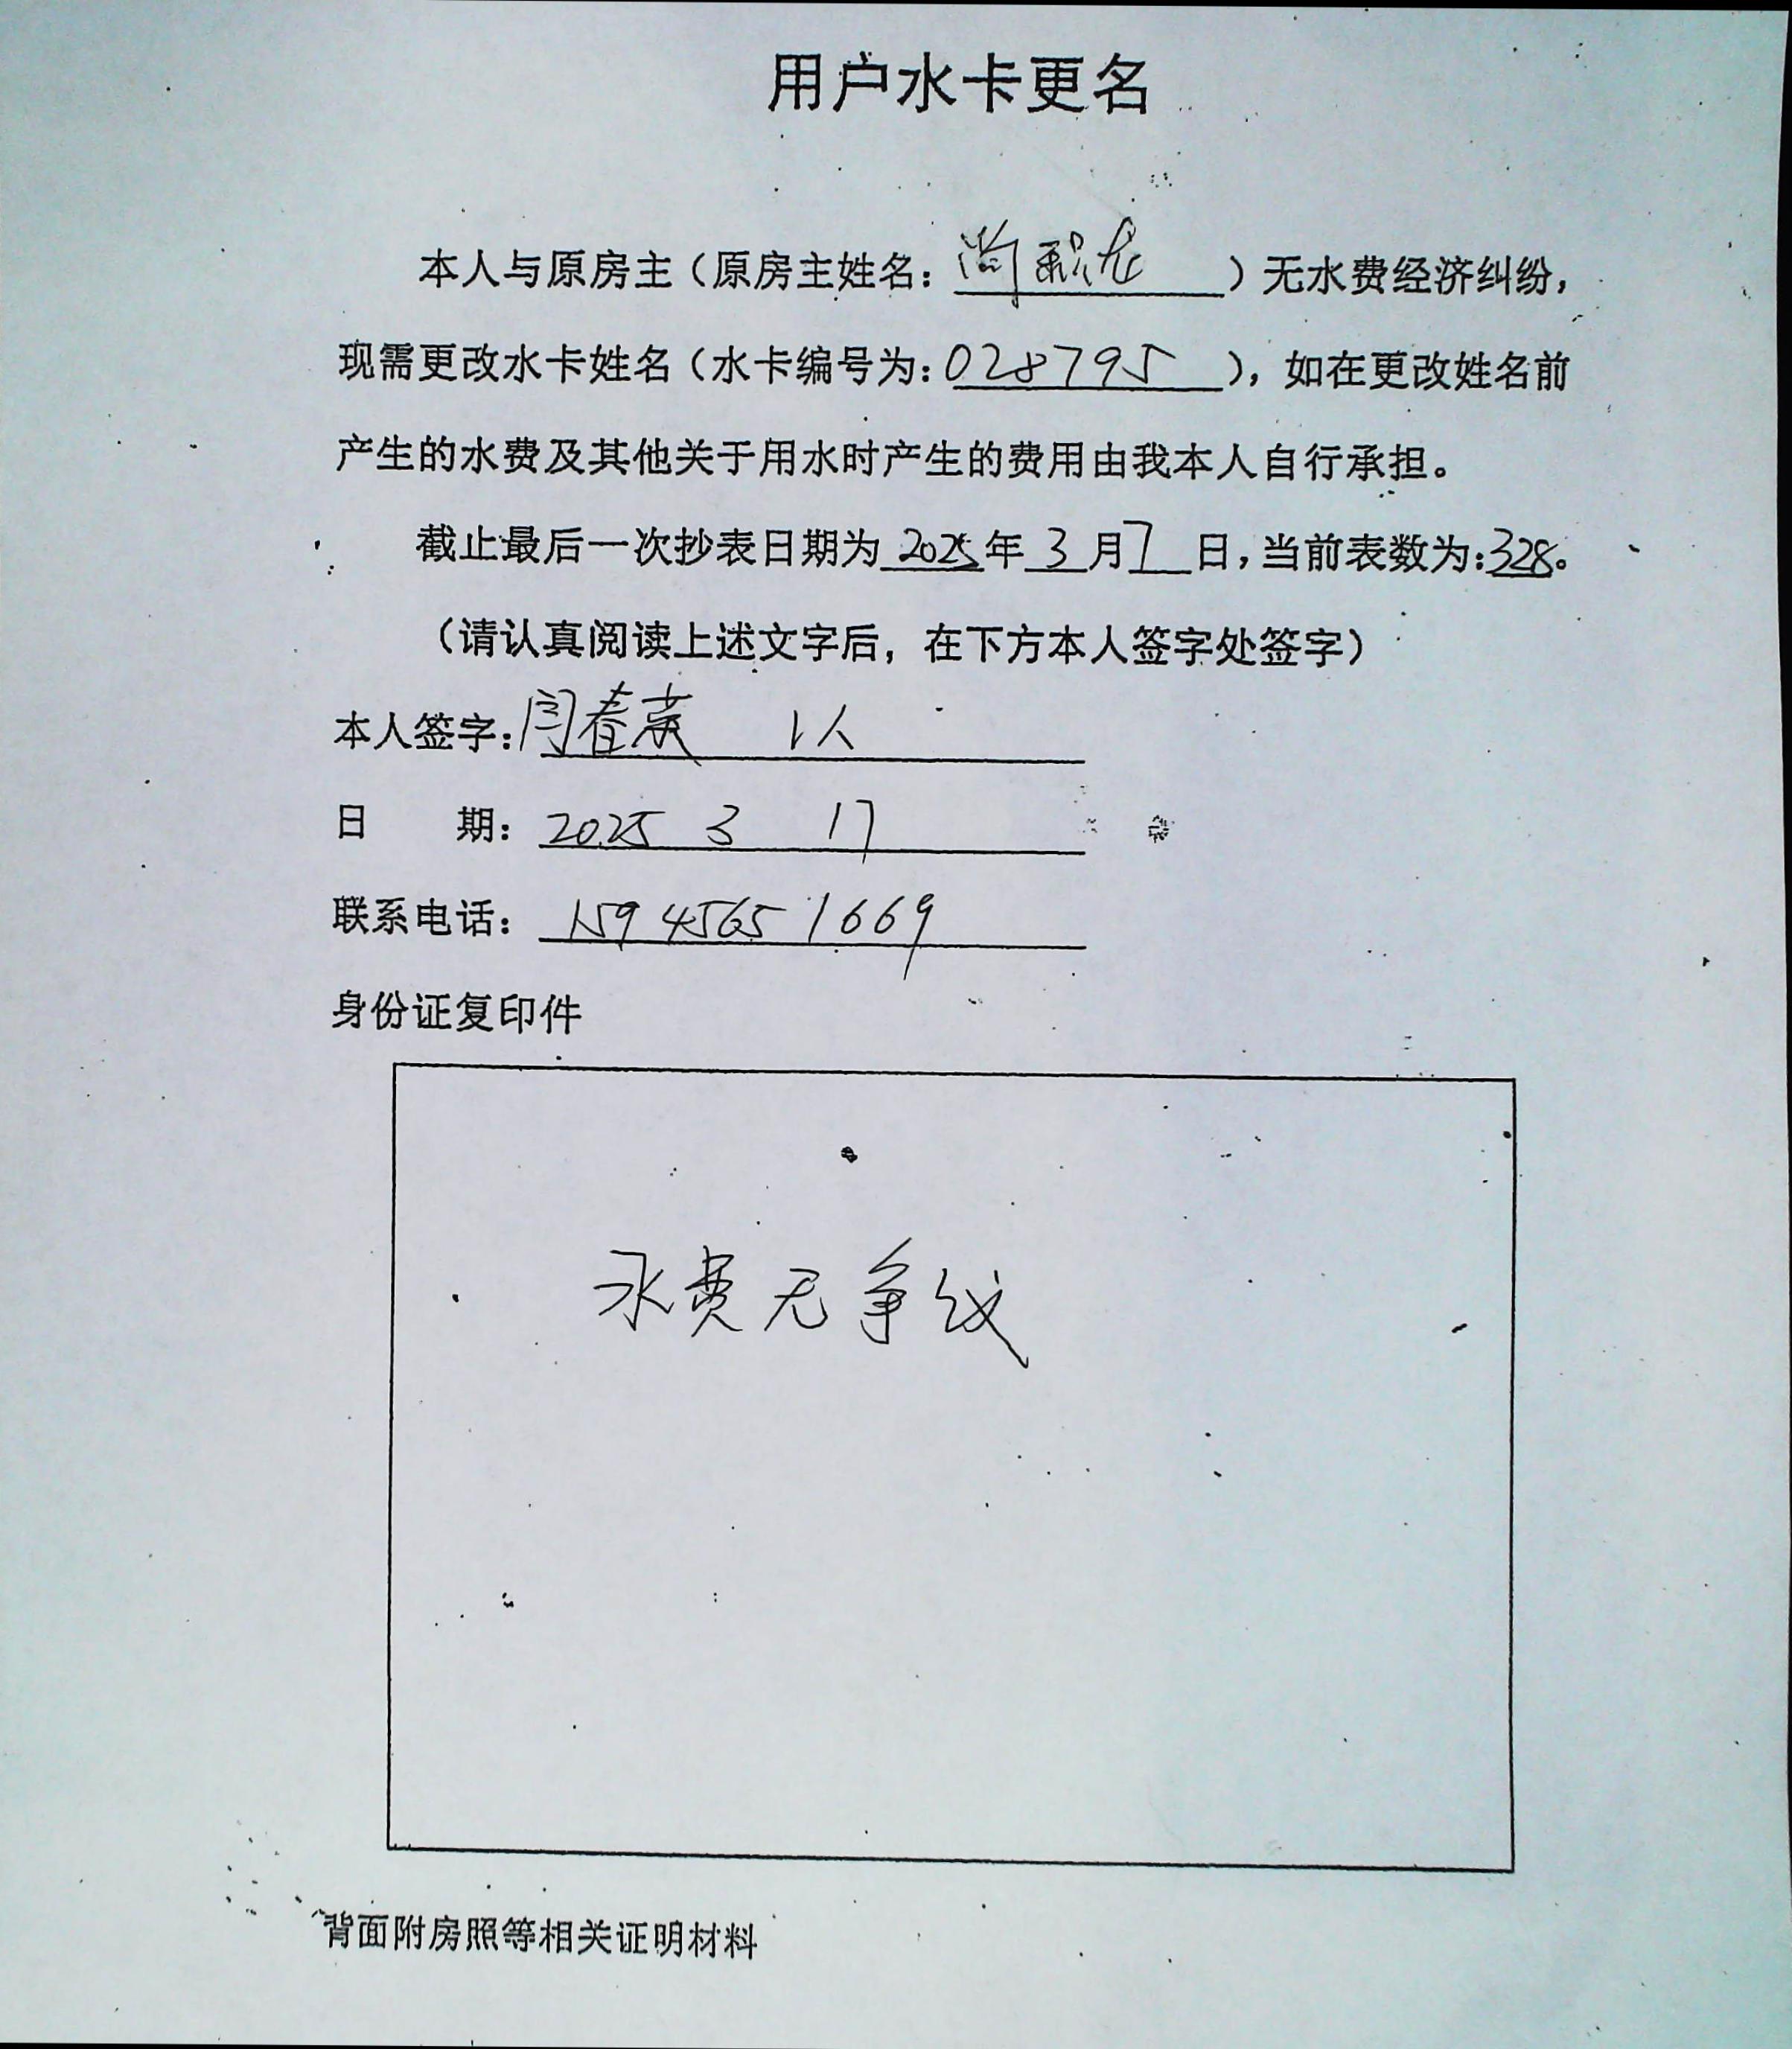 用户水卡更名
本人与原房主（原房主姓名：尚）无水费经济纠纷，
现需更改水卡姓名（水卡编号为：028795），如在更改姓名前
产生的水费及其他关于用水时产生的费用由我本人自行承担。
截止最后一次抄表日期为2025年3月7日，当前表数为：328。
（请认真阅读上述文字后，在下方本人签字处签字）
本人签字：闫春 1人
日 期：2025 3 17
联系电话：159 4565 1669
身份证复印件
水费无争议
背面附房照等相关证明材料